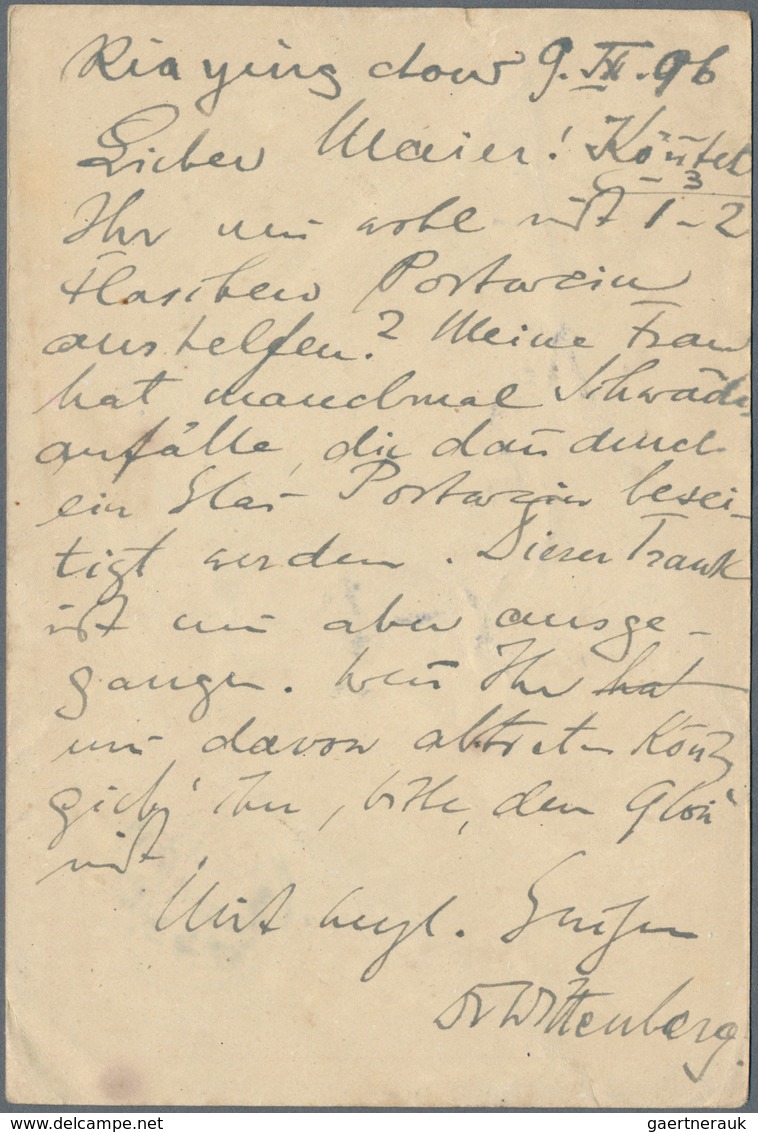 Kia ying chow 9. IX. 96
Lieber Maier! Könt̄et
Ihr mir wohl nicht 1–2 –3
Flaschen Portwein
aushelfen? Meine Frau
hat manchmal Schwäche
anfälle, die dan̄ durch
ein Glas Portwein besei-
tigt werden. Dieser Trank
ist mir aber ausge-
gangen. Wen̄ Ihr hat
mir davon abtreten kön̄t,
gieb' ihn, bitte, dem
mit
Mit hrzl. Grüßen
Dr Wittenberg.
gaertnerauk